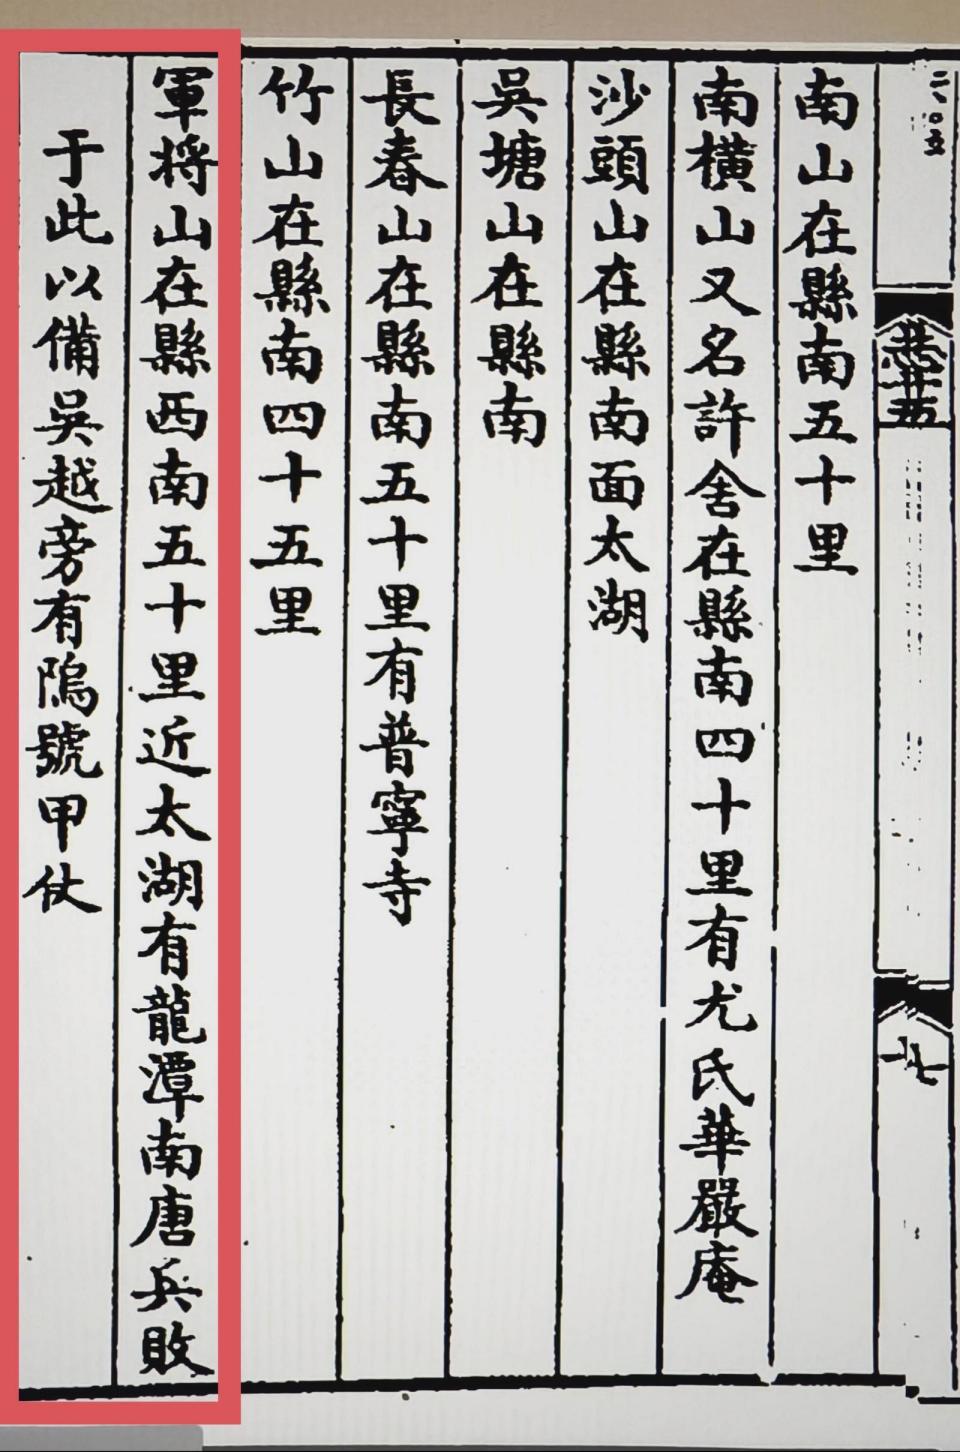 二〇五
卷廿五
十七
南山在縣南五十里
南橫山又名許舍在縣南四十里有尤氏華嚴庵
沙頭山在縣南面太湖
吳塘山在縣南
長春山在縣南五十里有普寧寺
竹山在縣南四十五里
軍將山在縣西南五十里近太湖有龍潭南唐兵敗
于此以備吳越旁有隖號甲仗